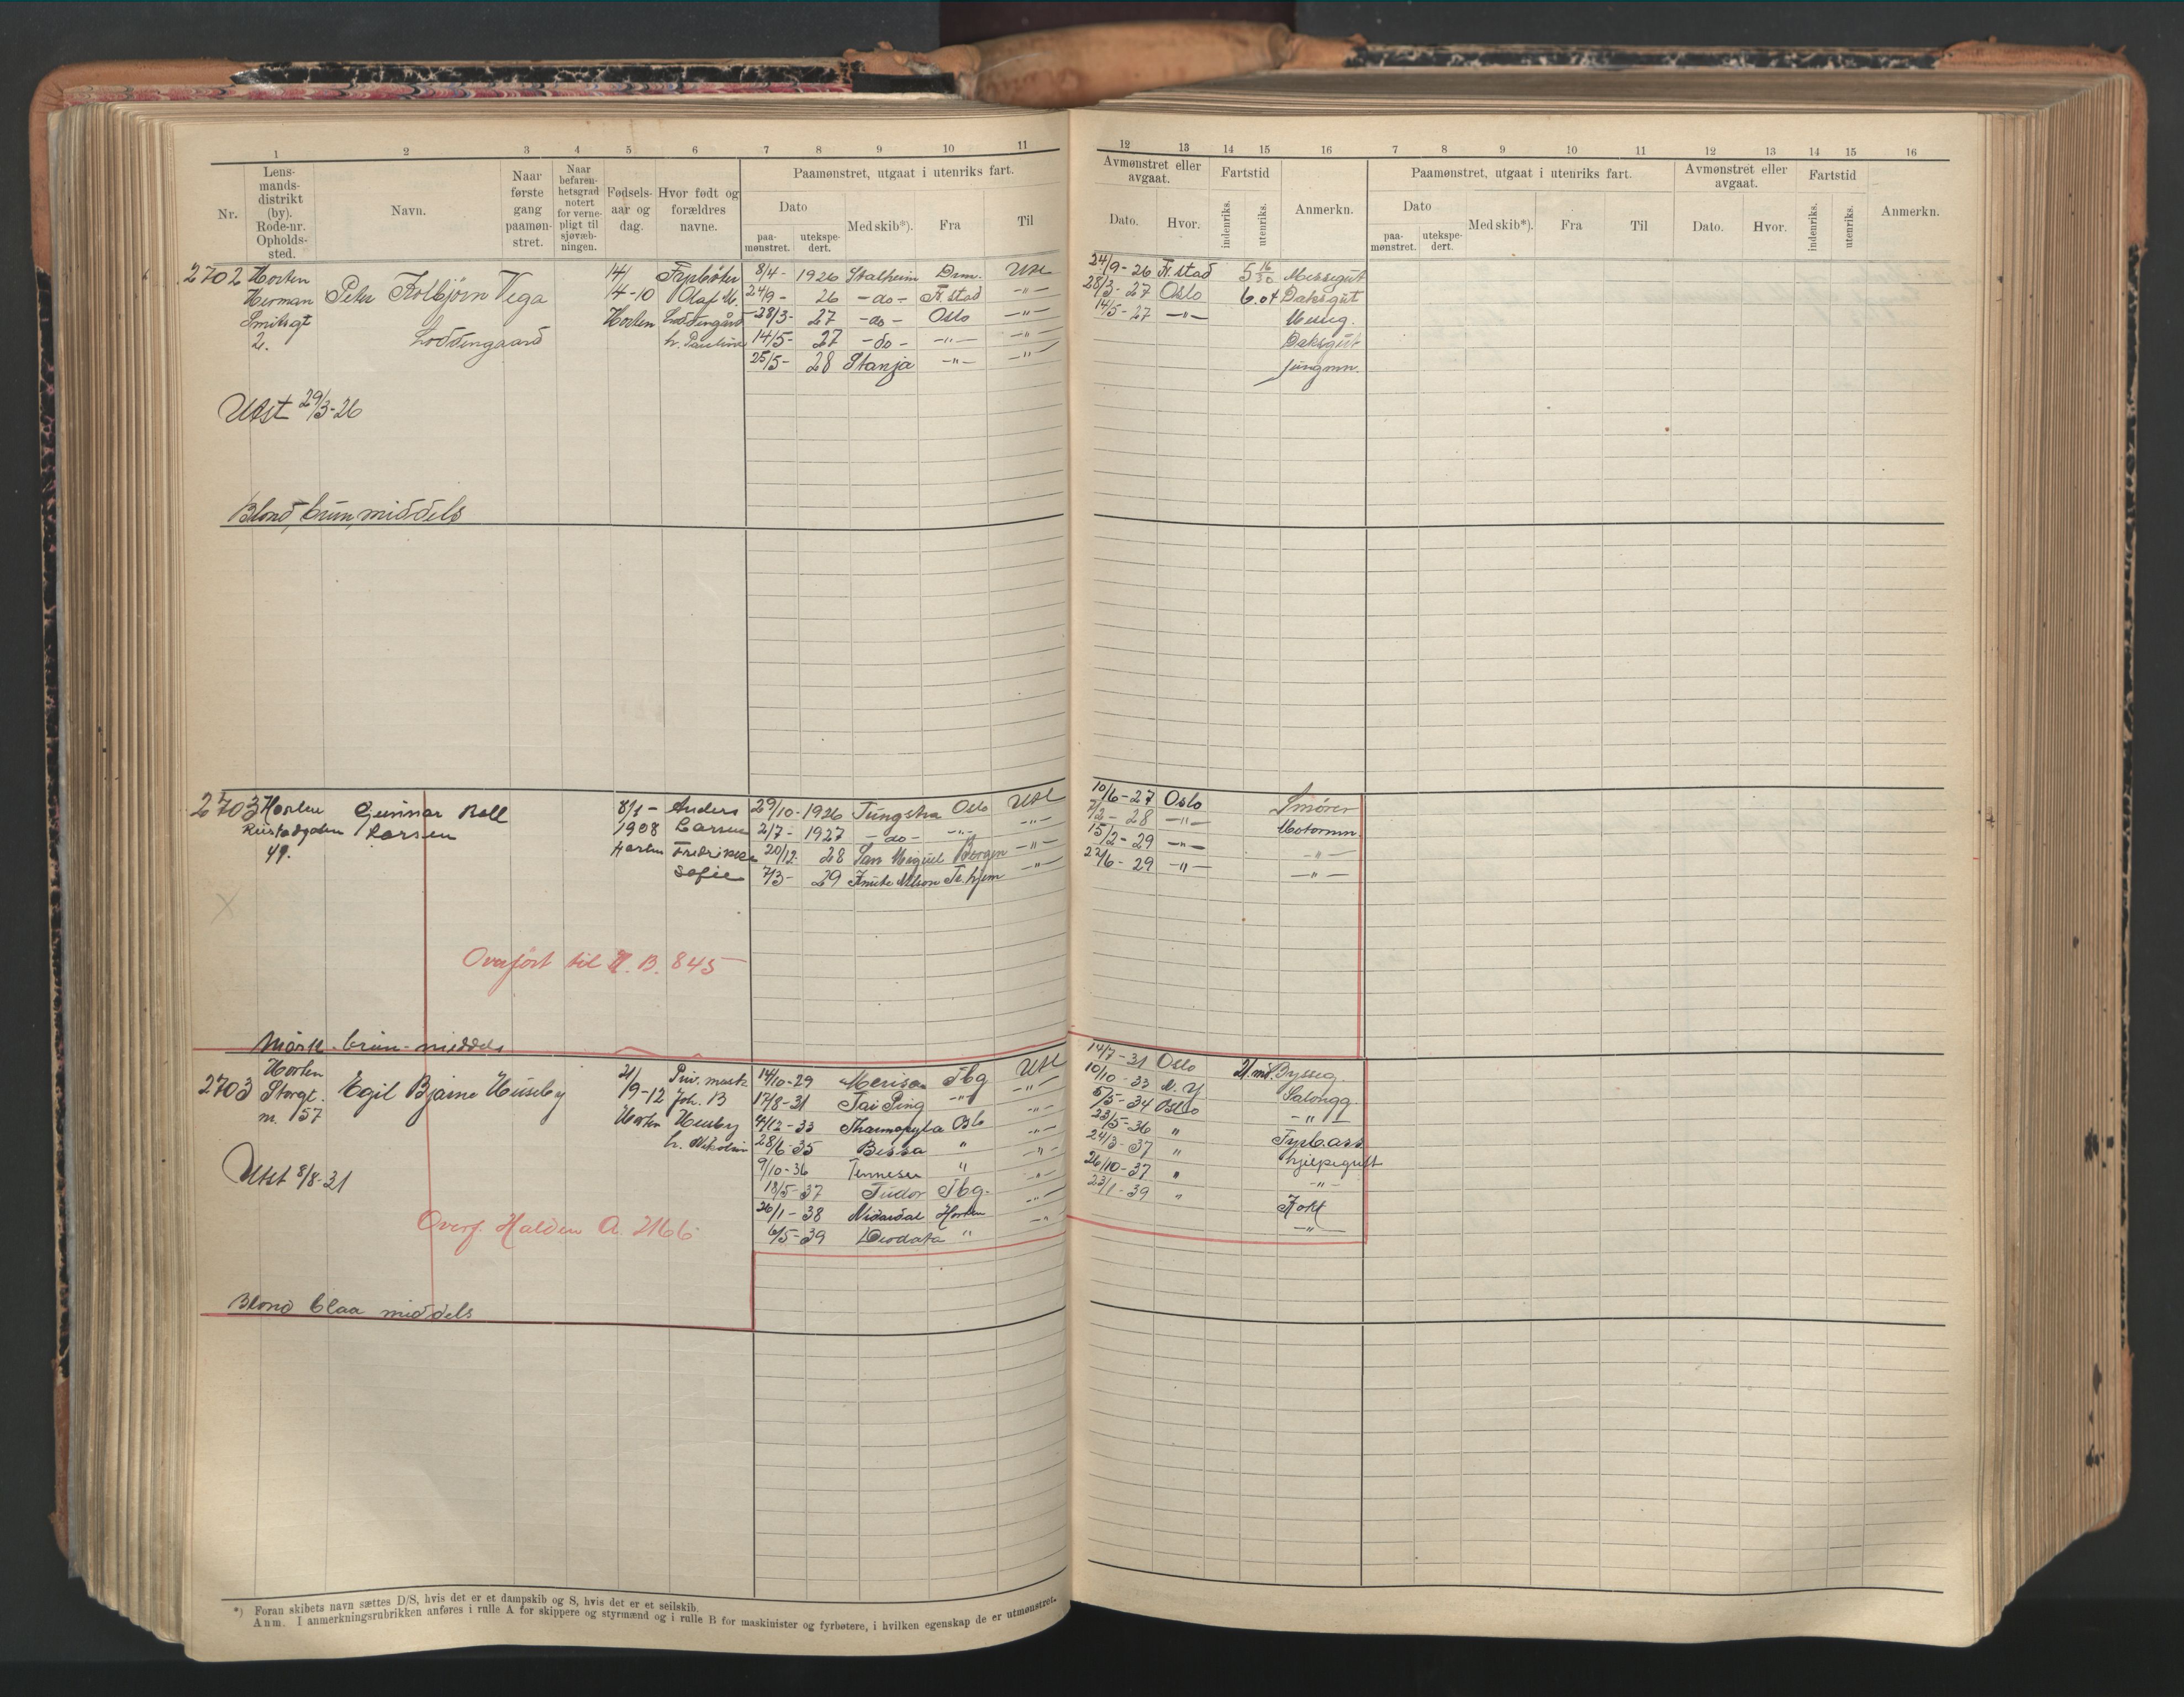 1 2 3 4 5 6 7 8 9 10 11
Nr.
Lens-
mands-
distrikt
(by).
Rode-nr.
Opholds-
sted.
Navn.
Naar
første
gang
paamøn-
stret.
Naar
befaren-
hetsgrad
notert
for verne-
pligt til
sjøvæb-
ningen.
Fødsels-
aar og
dag.
Hvor født og
forældres
navne.
Paamønstret, utgaat i utenriks fart.
Dato
paa-
mønstret.
utekspe-
dert.
Med skib*).
Fra
Til
12 13 14 15 16 7 8 9 10 11 12 13 14 15 16
Avmønstret eller
avgaat.
Dato.
Hvor.
Fartstid
indenriks.
utenriks.
Anmerkn.
Paamønstret, utgaat i utenriks fart.
Dato
paa-
mønstret.
utekspe-
dert.
Med skib*).
Fra
Til
Avmønstret eller
avgaat.
Dato.
Hvor.
Fartstid
indenriks.
utenriks.
Anmerkn.
2702 Horten
Herman
Smithsgt
2.
Peter Kolbjørn Vega
Loddengaard
14/
4-10
Horten
Fyrbøter
Olaf M.
Loddengård
h. Pauline
8/4- 1926 Stalheim Drm. Utl
24/9- 26 -do- Fr.stad -"-
28/3- 27 -do- Oslo -"-
14/5- 27 -do- -"- -"-
25/5- 28 Stanja -"- -"-
24/9-26 Fr.stad 5 16/30 Messegut
28/3-27 Oslo 6.04 Daksgut
14/5-27 -"- Matrg.
Daksgut
Jungmn.
Utst 29/3-26
Blond, brun, middels
2703 Horten
Rustadgaten
49.
Gunnar Ball
Larsen
8/1-
1908
Horten
Anders
Larsen
Fredrikke
Sofie
29/10-1926 Tungsha Oslo Utl
2/7- 1927 -do- -"- -"-
20/12- 28 San Miguel Bergen -"-
7/3- 29 Knute Nelson Tr.hjem -"-
10/6-27 Oslo Smører
7/2-28 -"- Motormn.
15/2-29 -"- -"-
22/6-29 -"- -"-
Overført til N. B. 845
Mørk - brun - middels
2703 Horten
Storgt.
m. 157
Egil Bjarne Huseby
21/
9-12
Horten
Priv. mask
Joh. B
Huseby
h. Nikoline
14/10-29 Merisca Tbg Utl
17/8-31 Tai Ping -"- -"-
4/12-33 Thermopylæ Oslo -"-
28/6-35 Bessa " -"-
9/10-36 Tennessee " -"-
18/5-37 Tudor Tbg. -"-
26/1-38 Nidardal Horten -"-
6/5-39 Deodata " -"-
14/7-31 Oslo 21 md. Bysseg.
10/10-33 N.Y Salongg.
5/5-34 Oslo -"-
23/5-36 " Fyrb.ass
24/3-37 " hjelpegutt
26/10-37 " -"-
23/1-39 " Kokk
-"-
Utst 8/8-31
Overf. Halden A. 2166
Blond blaa middels
*) Foran skibets navn sættes D/S, hvis det er et dampskib og S, hvis det er et seilskib.
Anm. I anmerkningsrubrikken anføres i rulle A for skippere og styrmænd og i rulle B for maskinister og fyrbøtere, i hvilken egenskap de er utmønstret.